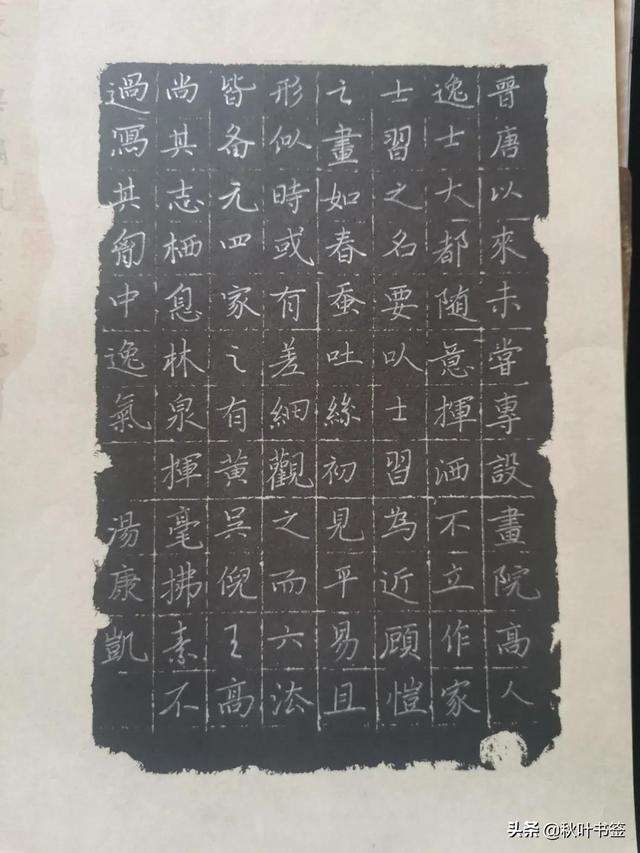 晋唐以來未嘗專設畫院高人
逸士大都随意揮洒不立作家
士習之名要以士習為近顧愷
之畫如春蚕吐絲初見平易且
形似時或有差細觀之而六法
皆备元四家之有黄吳倪王高
尚其志栖息林泉揮毫拂素不
過寫其胷中逸氣 湯康凱
头条 @秋叶书签